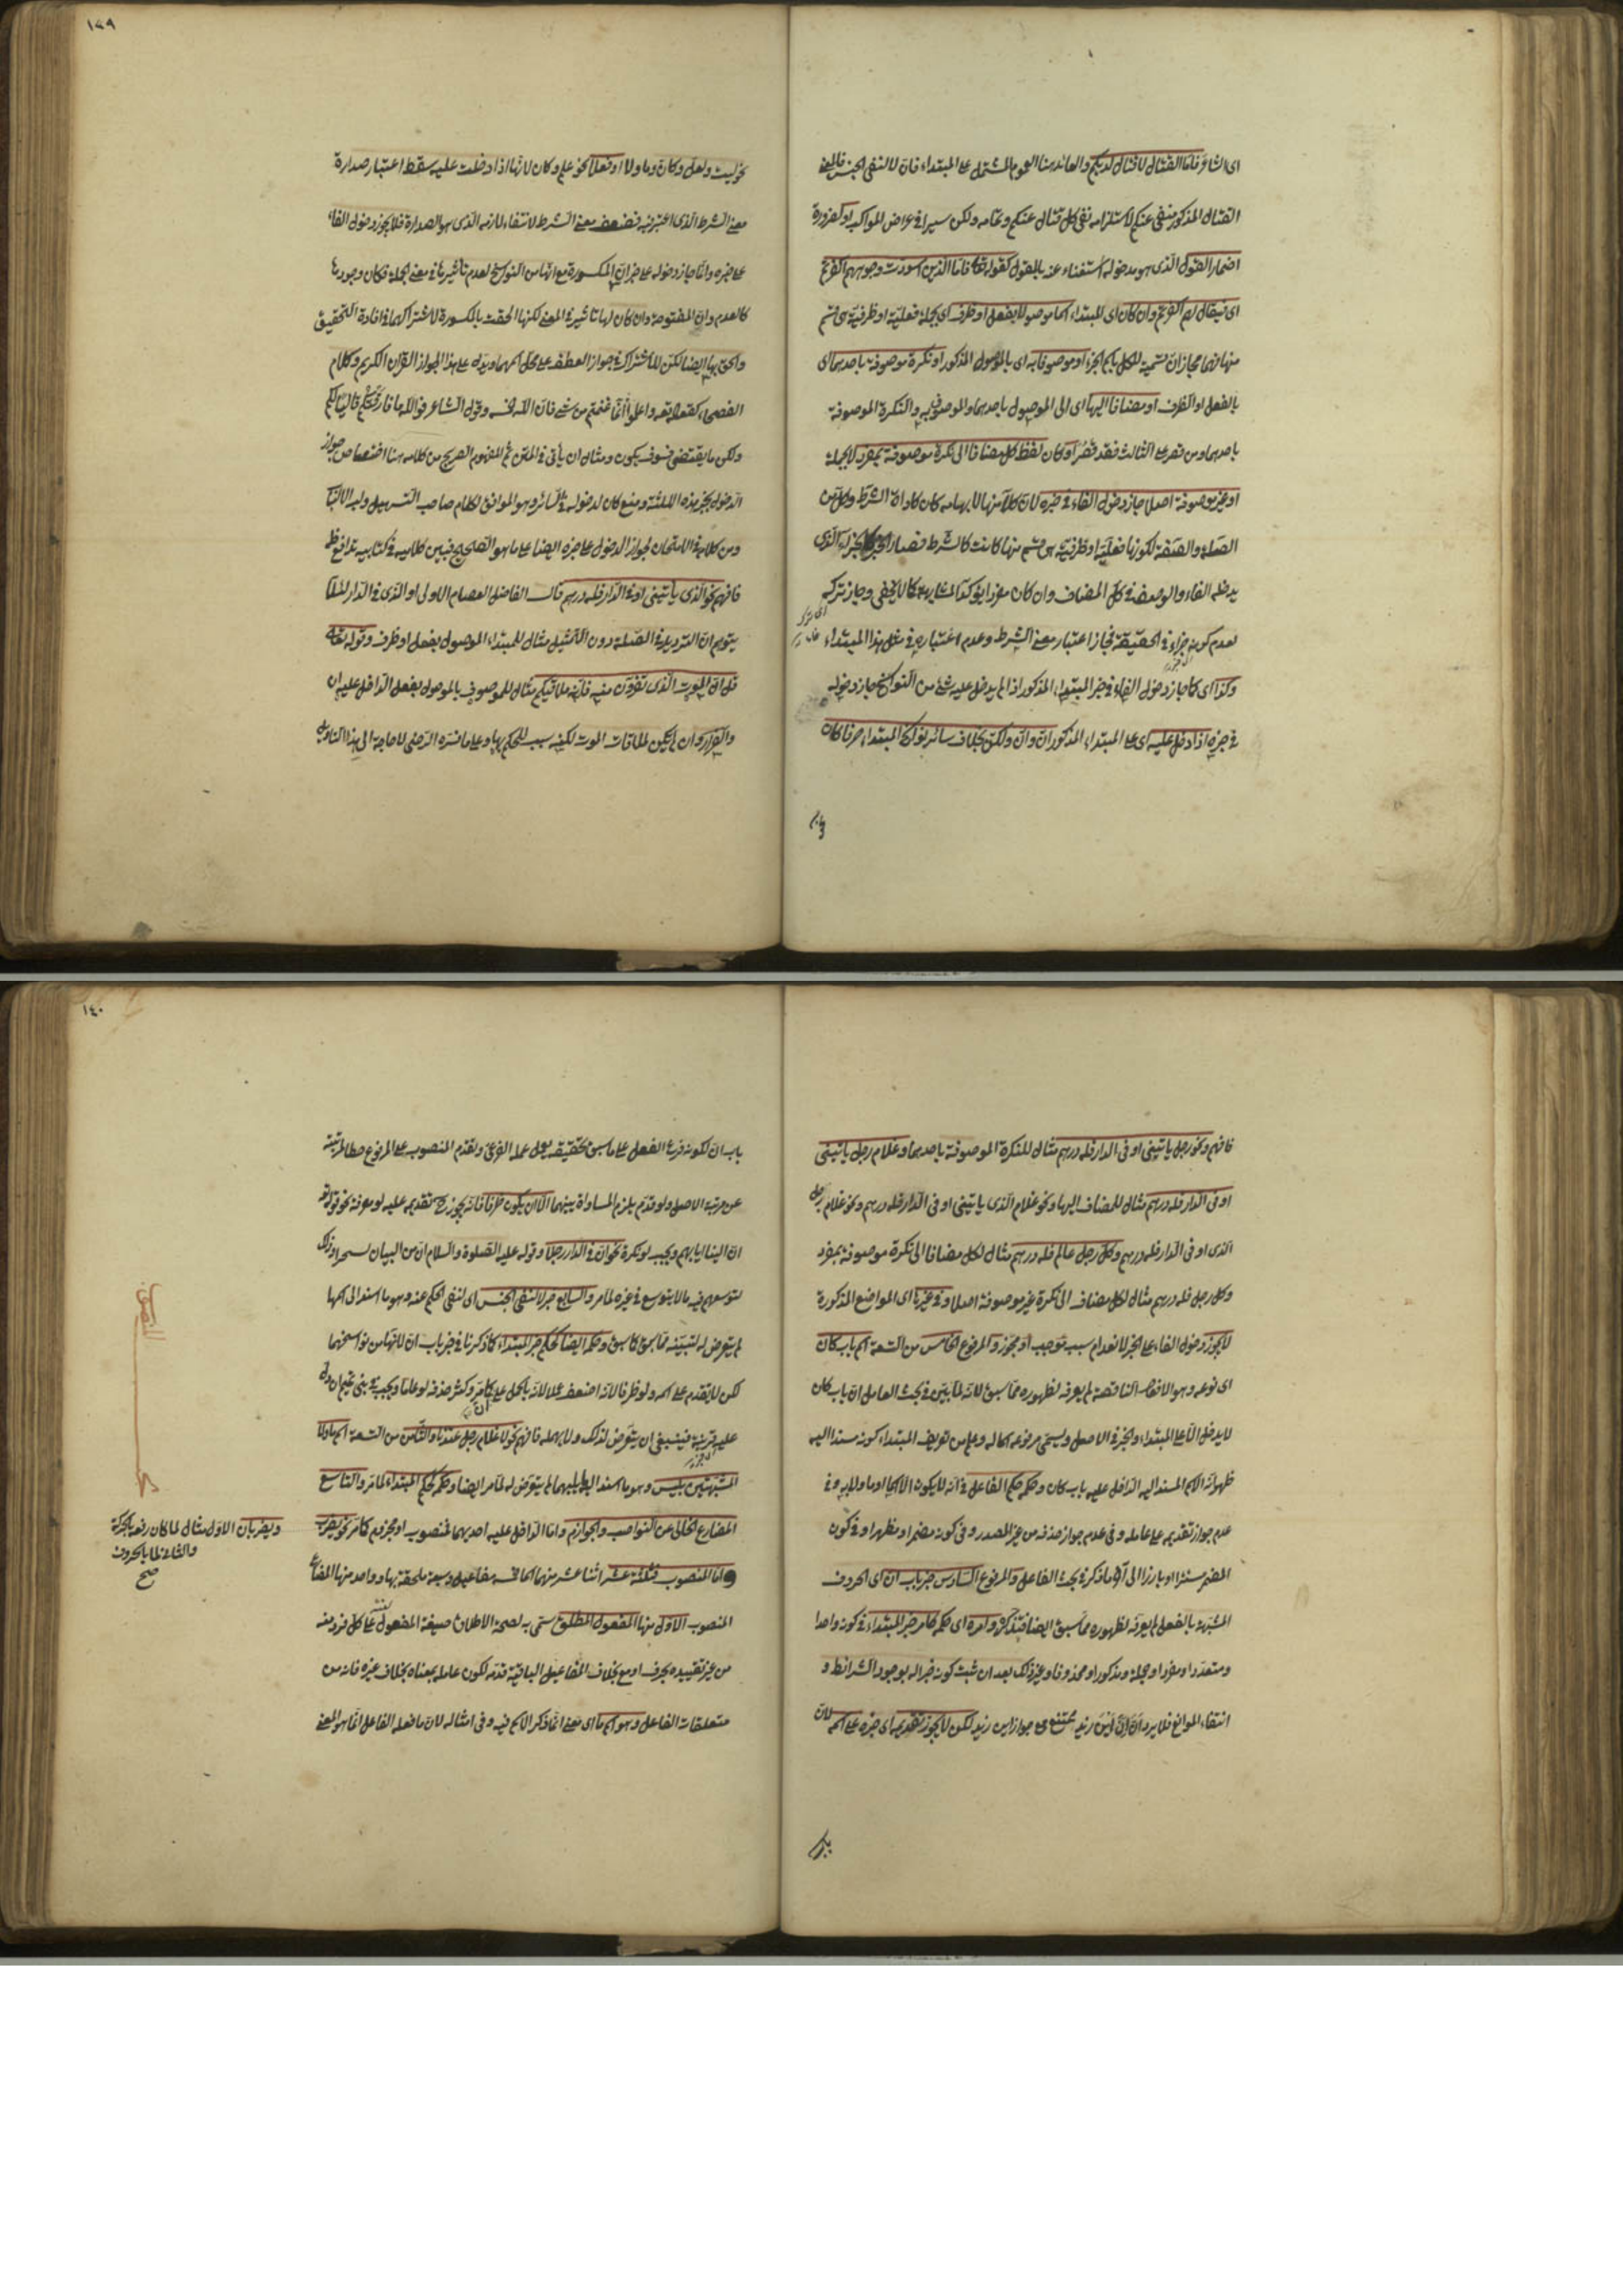 اى الشاعر فاما القتال لا قتال لديكم والعائد هنا العموم المشتمل على المبتداء فان لا لنفى الجنس فالمعنى
القتال المذكور منفى عنكم لاستلزامه نفى كل قتال عنكم وتمامه ولكن سيرا فى عراض المواكب او لضرورة
اضمار القول الذى هو مدخوله استغناء عنه بالمقول كقوله تعالى فاما الذين اسودت وجوههم اكفرتم
اى فيقال لهم اكفرتم وان كان اى المبتداء اسما موصولا بفعل او ظرف اى بجملة فعلية او ظرفية سمى قسم
منها بهما مجازا تسمية للكل باسم الجزء او موصوفا به اى بالموصول المذكور او نكرة موصوفة باحدهما اى
بالفعل او الظرف او مضافا اليها اى الى الموصول باحدهما والموصوف به والنكرة الموصوفة
باحدهما ومن قصر على الثالث فقد قصر او كان لفظ كل مضافا الى نكرة موصوفة بمفرد لا بجملة
او غير موصوفة اصلا جاز دخول الفاء فى خبره لان كلا منها لابهامه كان كاداة الشرط وكل من
الصلة والصفة لكونها فعلية او ظرفية هى قسم منها كانت كالشرط فصار الخبر كالجزاء الذى
يدخله الفاء والوصف فى كل المضاف وان كان مفردا يؤكد المشابهة كما لا يخفى وجاز تركه
لعدم كونه جزاء فى الحقيقة فجاز اعتبار معنى الشرط وعدم اعتباره فى مثل هذا المبتداء
وكذا اى كما جاز دخول الفاء فى خبر المبتداء المذكور اذا لم يدخل عليه شئ من النواسخ جاز دخوله
فى خبره اذا دخل عليه اى على المبتداء المذكور ان وان ولكن بخلاف سائر نواسخ المبتداء حرفا كان
١٣٩
نحو ليت ولعل وكان وما ولا او فعلا نحو علم وكان لانها اذا دخلت عليه سقط اعتبار صدارة
معنى الشرط الذى اعتبر فيه فضعف معنى الشرط لانتفاء لازمه الذى هو الصدارة فلا يجوز دخول الفاء
على خبره وانما جاز دخوله على خبر ان المكسورة مع انها من النواسخ لعدم تأثيرها فى معنى الجملة فكان وجودها
كالعدم وان المفتوحة وان كان لها تأثير فى المعنى لكنها الحقت بالمكسورة لاشتراكهما فى افادة التحقيق
والحق بها ايضا لكن للاشتراك فى جواز العطف على محل اسمهما ويدل على هذا الجواز القرآن الكريم وكلام
الفصحاء كقوله تعالى واعلموا انما غنمتم من شئ فان لله خمسه وقول الشاعر فوالله ما فارقتكم قاليا لكم
ولكن ما يقتضى فسوف يكون ومثال ان يأتى فى المتن ثم المفهوم الصريح من كلامه هنا اختصاص جواز
الدخول بخبر هذه الثلثة ومنع كان لدخوله فى السائر وهو الموافق لكلام صاحب التسهيل ولب الالباب
ومن كلامه فى الامتحان لجواز الدخول على خبره ايضا على ما هو الصحيح فبين كلاميه فى كتابيه تدافع ظ
فافهم نحو الذى يأتينى او فى الدار فله درهم قال الفاضل العصام الاولى او الذى فى الدار لئلا
يتوهم ان الترديد فى الصلة دون التمثيل مثال للمبتداء الموصول بفعل او ظرف وقوله تعالى
قل ان الموت الذى تفرون منه فانه ملاقيكم مثال للموصوف بالموصول بفعل الداخل عليه ان
والفرار وان لم يكن لملاقات الموت لكنه سبب للحكم بها وعلى ما فسره الرضى لا حاجة الى هذا التأويل
فافهم ونحو رجل يأتينى او فى الدار فله درهم مثال للنكرة الموصوفة باحدهما وغلام رجل يأتينى
او فى الدار فله درهم مثال للمضاف اليها ونحو غلام الذى يأتينى او فى الدار فله درهم ونحو غلام رجل
الذى او فى الدار فله درهم وكل رجل عالم فله درهم مثال لكل مضافا الى نكرة موصوفة بمفرد
وكل رجل فله درهم مثال لكل مضاف الى نكرة غير موصوفة اصلا وفى غيرها اى المواضع المذكورة
لا يجوز دخول الفاء على الخبر لانعدام سبب موجب او مجوز والمرفوع الخامس من التسعة اسم باب كان
اى نوعه وهو الافعال الناقصة لم يعرفه لظهوره مما سبق لانه لما بين فى بحث العامل ان باب كان
لا يدخل الا على المبتداء والخبر فى الاصل ويسمى مرفوعه اسما له وعلم من تعريف المبتداء كونه مسندا اليه
ظهر انه الاسم المسند اليه الداخل عليه باب كان وحكمه حكم الفاعل فى انه لا يكون الا اسما او ما ولابه وفى
عدم جواز تقديمه على عامله وفى عدم جواز حذفه من غير المصدر وفى كونه مضمرا ومظهرا وفى كون
المضمر مستترا وبارزا الى آخر ما ذكر فى بحث الفاعل والمرفوع السادس خبر باب ان اى الحروف
المشبهة بالفعل لم يعرفه لظهوره مما سبق ايضا فتذكر وامره اى حكمه كامر خبر المبتداء فى كونه واحدا
ومتعددا ومفردا وجملة ومذكورا ومحذوفا وغير ذلك بعد ان ثبت كونه خبرا له بوجود الشرائط و
انتفاء الموانع فلا يرد ان ان اين زيد ممتنع مع جواز اين زيد لكن لا يجوز تقديمه اى خبره على اسمه لان
باب
١٤٠
باب ان لكونه فرع الفعل على ما سبق تحقيقه يعمل عمله الفرعى وتقدم المنصوب على المرفوع حطا لمرتبته
عن مرتبة الاصل ولو قدم يلزم المساواة بينهما الا ان يكون ظرفا فانه يجوز ح تقديمه عليه لو معرفة نحو قوله تعالى
ان الينا ايابهم ويجب لو نكرة نحو ان فى الدار رجلا وقوله عليه الصلوة والسلام ان من البيان لسحرا وذلك
لتوسعهم فيه ما لا يتوسع فى غيره لما مر والسابع خبر لا لنفى الجنس اى لنفى الحكم عنه وهو ما اسند الى اسمها
لم يتعرض له لتبينه مما سبق كما سبق وحكمه ايضا كحكم خبر المبتداء كما ذكرنا فى خبر باب ان لانها من نواسخهما
لكن لا يتقدم على اسمه ولو ظرفا لانه اضعف عملا لانه بالحمل على ان كما مر وكثر حذفه لو علما ويجب فى بنى تميم ان دل
عليه قرينة فينبغى ان يتعرض لذلك ولا يهمله فافهم نحو لا غلام رجل عندنا والثامن من التسعة اسم ما ولا
المشبهتين بليس وهو ما اسند اليه بليهما لم يتعرض له لما مر ايضا وحكمه كحكم المبتداء لما مر والتاسع
المضارع الخالى عن النواصب والجوازم واما الداخل عليه احديهما فمنصوب او مجزوم كما مر نحو يضرب
ويضربان الاول مثال لما كان رفعه بالحركة
والثانى لما بالحروف
صح
واما المنصوب فثلثة عشر اثنا عشر منهما اسما خمسة مفاعيل وسبعة ملحقة بها وواحد منها المضارع
المنصوب الاول منها المفعول المطلق سمى به لصحة الاطلاق صيغة المفعول على كل فرد منه
من غير تقييده بحرف او مع بخلاف المفاعيل الباقية قدمه لكون عامله بمعناه بخلاف غيره فانه من
متعلقات الفاعل وهو اسم ما اى معنى انما ذكر الاسم فيه وفى امثاله لان ما فعله الفاعل انما هو المعنى